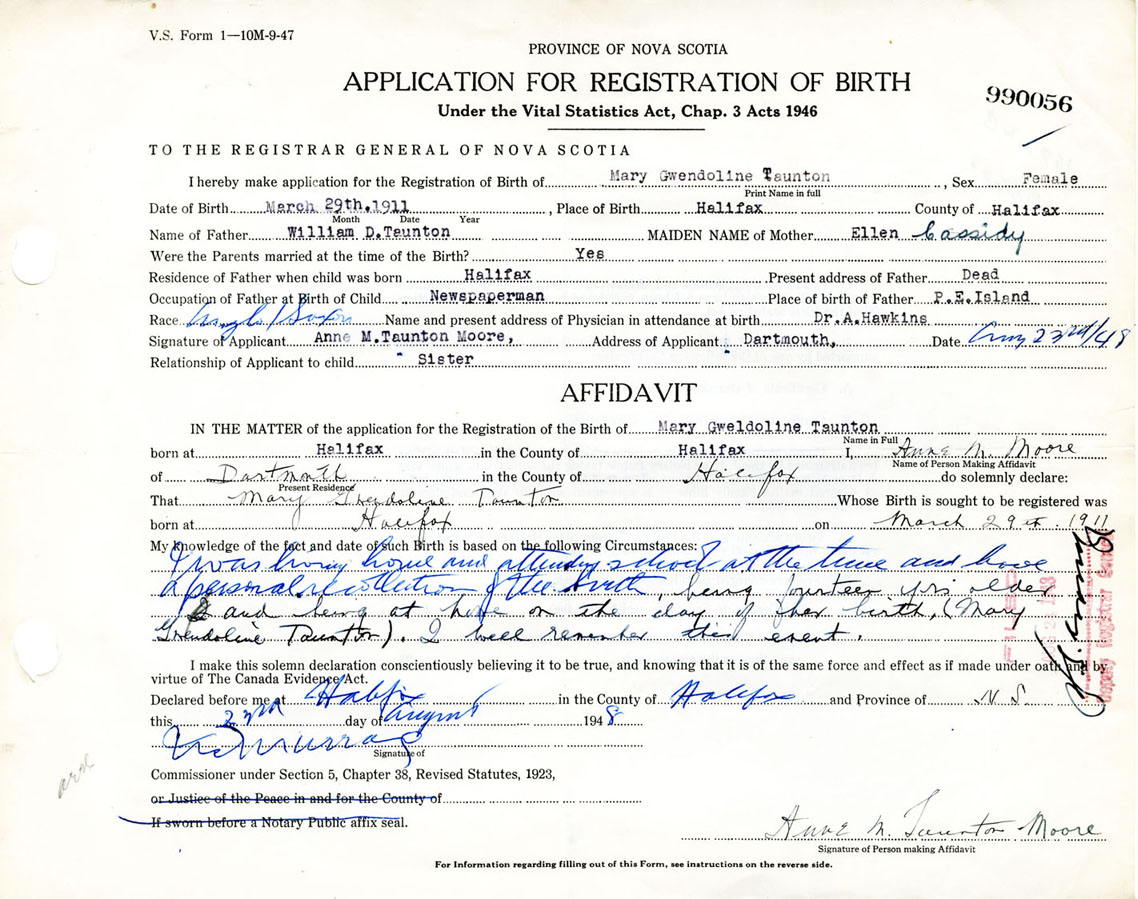 V.S. Form 1—10M-9-47
PROVINCE OF NOVA SCOTIA
APPLICATION FOR REGISTRATION OF BIRTH
990056
Under the Vital Statistics Act, Chap. 3 Acts 1946
TO THE REGISTRAR GENERAL OF NOVA SCOTIA
I hereby make application for the Registration of Birth of Mary Gwendoline Taunton, Sex Female
Print Name in full
Date of Birth March 29th.1911, Place of Birth Halifax County of Halifax
Month Date Year
Name of Father William D.Taunton MAIDEN NAME of Mother Ellen Cassidy
Were the Parents married at the time of the Birth? Yes
Residence of Father when child was born Halifax Present address of Father Dead
Occupation of Father at Birth of Child Newspaperman Place of birth of Father P.E.Island
Race Anglo/Saxon Name and present address of Physician in attendance at birth Dr.A.Hawkins
Signature of Applicant Anne M.Taunton Moore, Address of Applicant Dartmouth, Date Aug 23rd/48
Relationship of Applicant to child Sister
AFFIDAVIT
IN THE MATTER of the application for the Registration of the Birth of Mary Gweldoline Taunton
Name in Full
born at Halifax in the County of Halifax I, Anne M. Moore
Name of Person Making Affidavit
of Dartmouth in the County of Halifax do solemnly declare:
Present Residence
That Mary Gwendoline Taunton Whose Birth is sought to be registered was
born at Halifax on March 29th. 1911
My Knowledge of the fact and date of such Birth is based on the following Circumstances:
I was living home and attending school at the time and have
a personal recollection of the birth, being fourteen yrs older
and being at home on the day of her birth, (Mary
Gwendoline Taunton). I well remember this event.
I make this solemn declaration conscientiously believing it to be true, and knowing that it is of the same force and effect as if made under oath and by
virtue of The Canada Evidence Act.
Declared before me at Halifax in the County of Halifax and Province of N S
this 23rd day of August 1948
Murray
Signature of
Commissioner under Section 5, Chapter 38, Revised Statutes, 1923,
or Justice of the Peace in and for the County of
If sworn before a Notary Public affix seal.
Anne M. Taunton Moore
Signature of Person making Affidavit
For Information regarding filling out of this Form, see instructions on the reverse side.